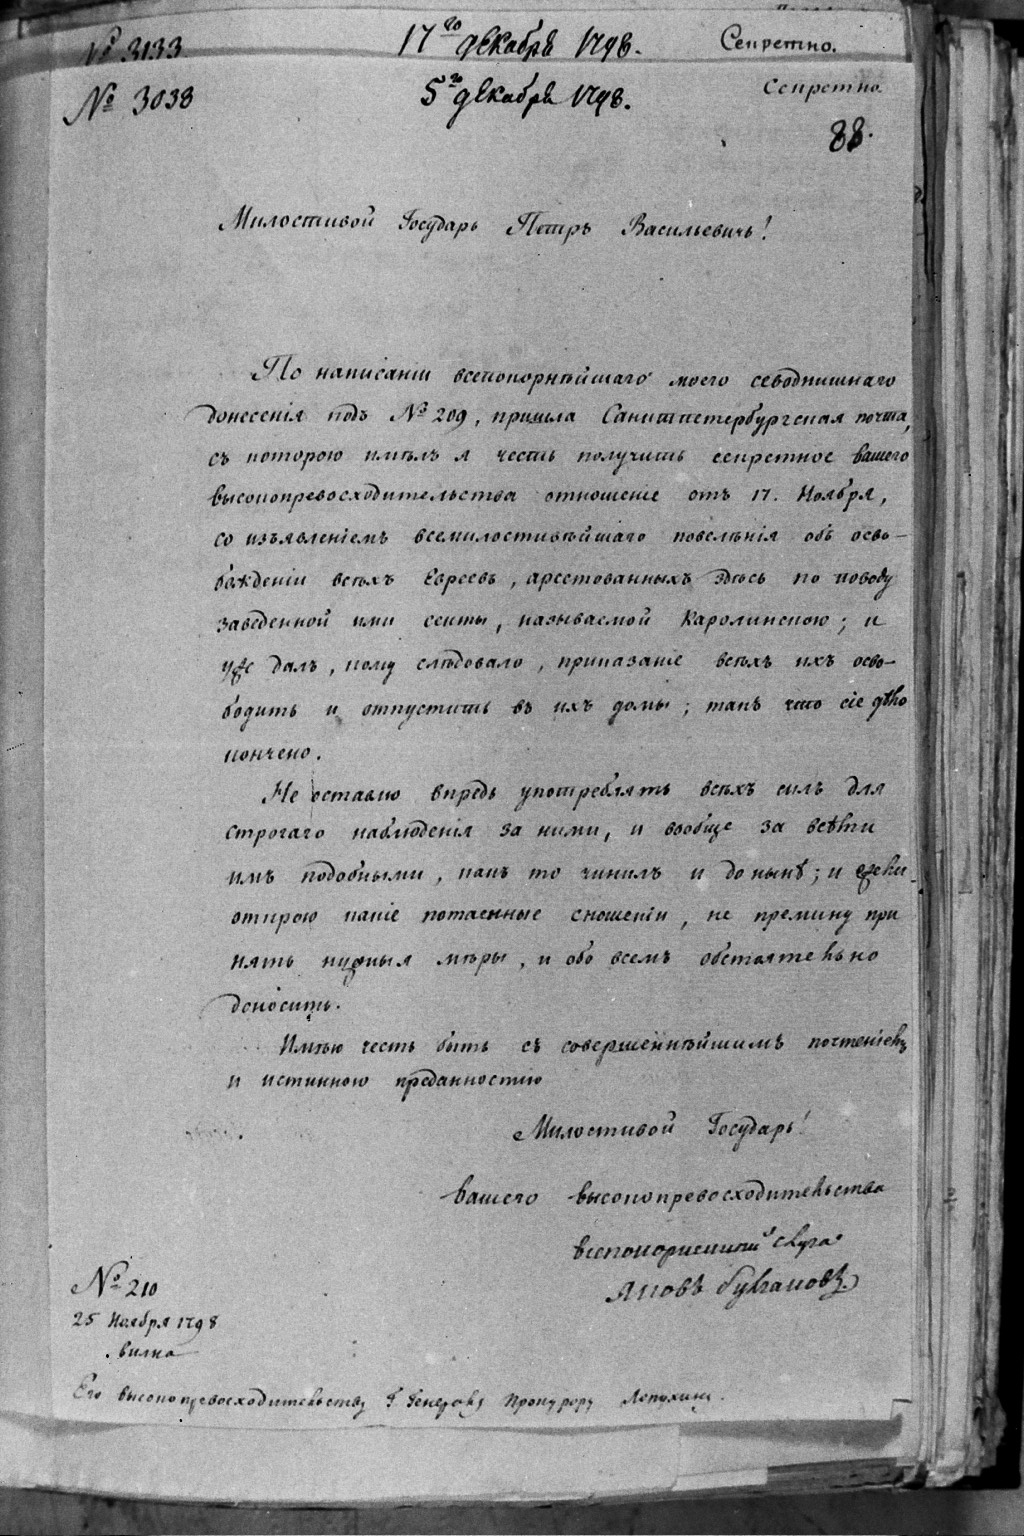 № 3133 17го декабря 1798. Секретно.
№ 3038 5го декабря 1798. Секретно.
88.
Милостивой Государь Петръ Васильевичь!
По написаніи всепокорнѣйшаго моего севоднишнаго
донесенія подъ № 209, пришла Санктпетербургская почта,
съ которою имѣлъ я честь получить секретное вашего
высокопревосходительства отношеніе отъ 17. Ноября,
со изъявленіемъ всемилостивѣйшаго повелѣнія объ осво-
бжденіи всѣхъ Евреевъ, арестованныхъ здѣсь по поводу
заведенной ими секты, называемой Каролинскою; и
уже далъ, кому слѣдовало, приказаніе всѣхъ ихъ осво-
бодить и отпустить въ ихъ домы; такъ что сіе дѣло
кончено.
Не оставлю впредь употреблять всѣхъ силъ для
строгаго наблюденія за ними, и вообще за всѣми
имъ подобными, какъ то чинилъ и до нынѣ; и ежели
открою какіе потаенные сношеніи, не премину при
нять нужныя мѣры, и обо всемъ обстоятельно
доносить.
Имѣю честь быть съ совершеннѣйшимъ почтеніемъ
и истинною преданностію
Милостивой Государь!
вашего высокопревосходительства
всепокорнѣйшій слуга
Яковъ Булгаковъ.
№ 210
25 Ноября 1798
Вилна
Его высокопревосходительству Г Генералу Прокурору Лопухину.